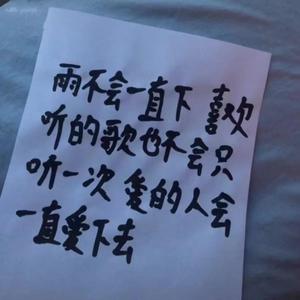 雨不会一直下 喜欢
听的歌也不会只
听一次 爱的人会
一直愛下去